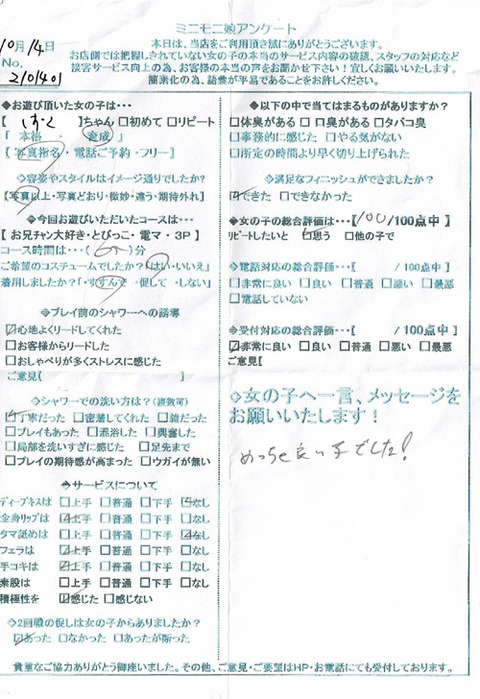 ミニモニ娘アンケート
10月14日
No.
2101401
本日は、当店をご利用頂き誠にありがとうございます。
お店側では把握しきれていない女の子の本当のサービス内容の確認、スタッフの対応など
接客サービス向上の為、お客様の本当の声をお聞かせ下さい!宜しくお願いいたします。
簡素化の為、語彙が平易であることをお許しください。
◆お遊び頂いた女の子は・・・
【 】ちゃん □初めて □リピート
「 本格 ・ 育成 」
【 写真指名・電話ご予約・フリー】
◇容姿やスタイルはイメージ通りでしたか?
【写真以上・写真どおり・微妙・違う・期待外れ】
◆今回お遊びいただいたコースは・・・
【 お兄チャン大好き・とびっこ・電マ・3P 】
コース時間は・・・( 60 )分
ご希望のコスチュームでしたか?「はい・いいえ」
着用しましたか?「・すすんで ・促して ・しない」
◆プレイ前のシャワーへの誘導
☑心地よくリードしてくれた
□お客様からリードした
□おしゃべりが多くストレスに感じた
ご意見【 】
◆シャワーでの洗い方は?(複数可)
☑丁寧だった □密着してくれた □雑だった
□プレイもあった □混浴した □興奮した
□局部を洗いすぎに感じた □足先まで
□プレイの期待感が高まった □ウガイが無い
◆サービスについて
ディープキスは □上手 □普通 □下手 ☑なし
全身リップは ☑上手 □普通 □下手 □なし
タマ舐めは □上手 □普通 □下手 ☑なし
フェラは ☑上手 □普通 □下手 □なし
手コキは ☑上手 □普通 □下手 □なし
素股は □上手 □普通 □下手 □なし
積極性を ☑感じた □感じない
◇2回戦の促しは女の子からありましたか?
☑あった □なかった □あったが断った
◆以下の中で当てはまるものがありますか?
□体臭がある □口臭がある □タバコ臭
□事務的に感じた □やる気がない
□所定の時間より早く切り上げられた
◇満足なフィニッシュができましたか?
☑できた □できなかった
◆女の子の総合評価は・・・【 100 /100点中】
リピートしたいと ☑思う □他の子で
◇電話対応の総合評価・・・【 /100点中】
□非常に良い □良い □普通 □悪い □最悪
□電話していない
◆受付対応の総合評価・・・【 /100点中】
☑非常に良い □良い □普通 □悪い □最悪
ご意見【 】
◇女の子へ一言、メッセージを
お願いいたします!
めっちゃ良い子でした!
貴重なご協力ありがとう御座いました。その他、ご意見・ご要望はHP・お電話にても受付しております。